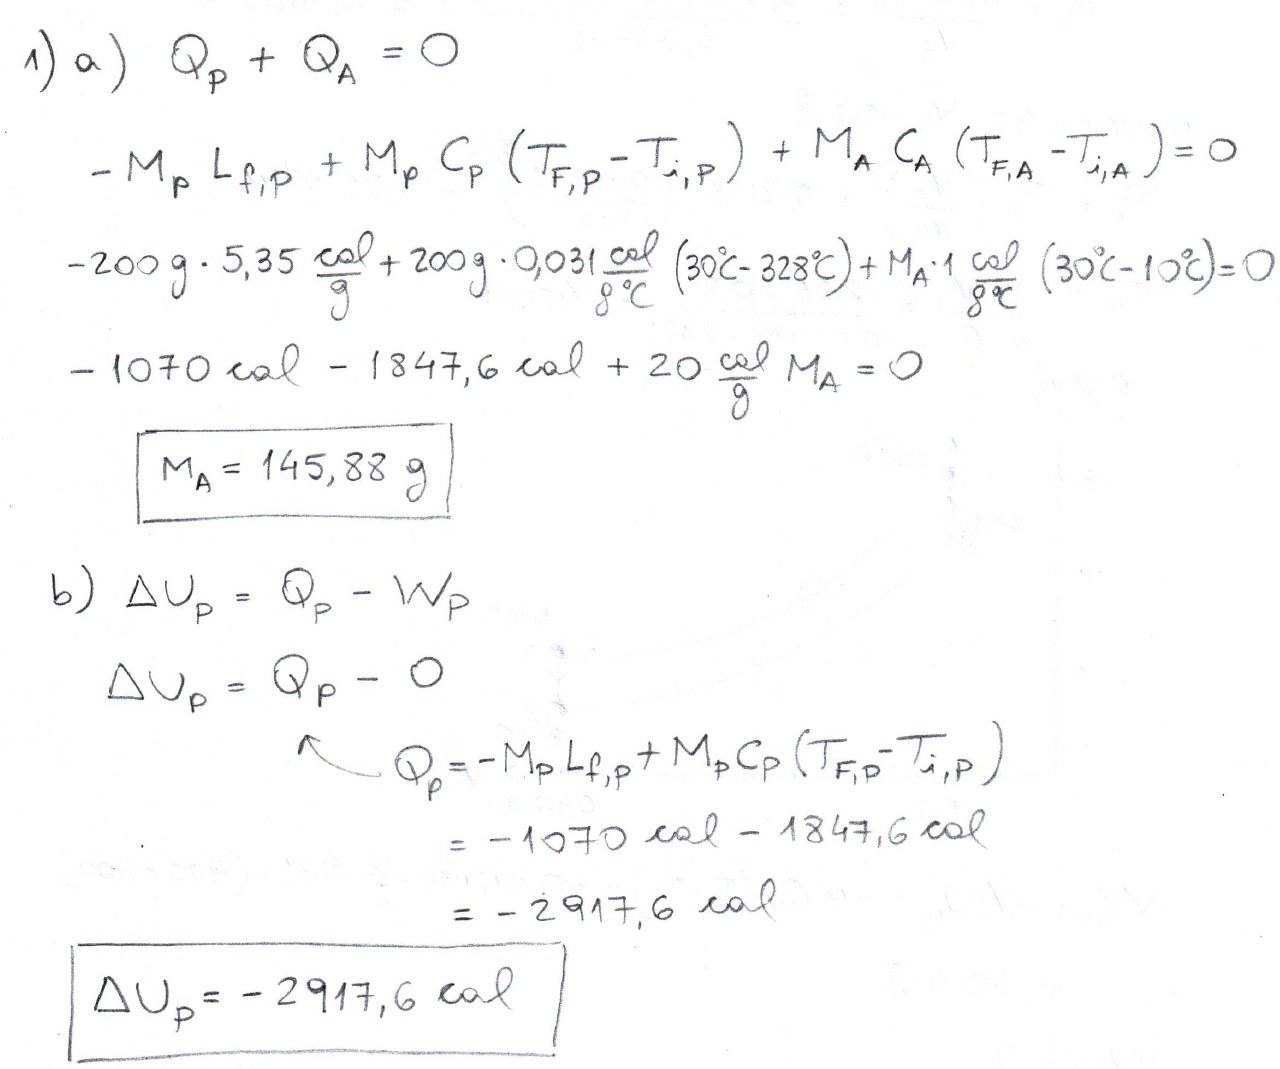 1) a) Q_P + Q_A = 0
- M_P L_{f,P} + M_P C_P (T_{F,P} - T_{i,P}) + M_A C_A (T_{F,A} - T_{i,A}) = 0
-200 g · 5,35 cal/g + 200 g · 0,031 cal/g°C (30°C - 328°C) + M_A · 1 cal/g°C (30°C - 10°C) = 0
- 1070 cal - 1847,6 cal + 20 cal/g M_A = 0
M_A = 145,88 g
b) ΔU_P = Q_P - W_P
ΔU_P = Q_P - 0
Q_P = - M_P L_{f,P} + M_P C_P (T_{F,P} - T_{i,P})
= -1070 cal - 1847,6 cal
= - 2917,6 cal
ΔU_P = - 2917,6 cal